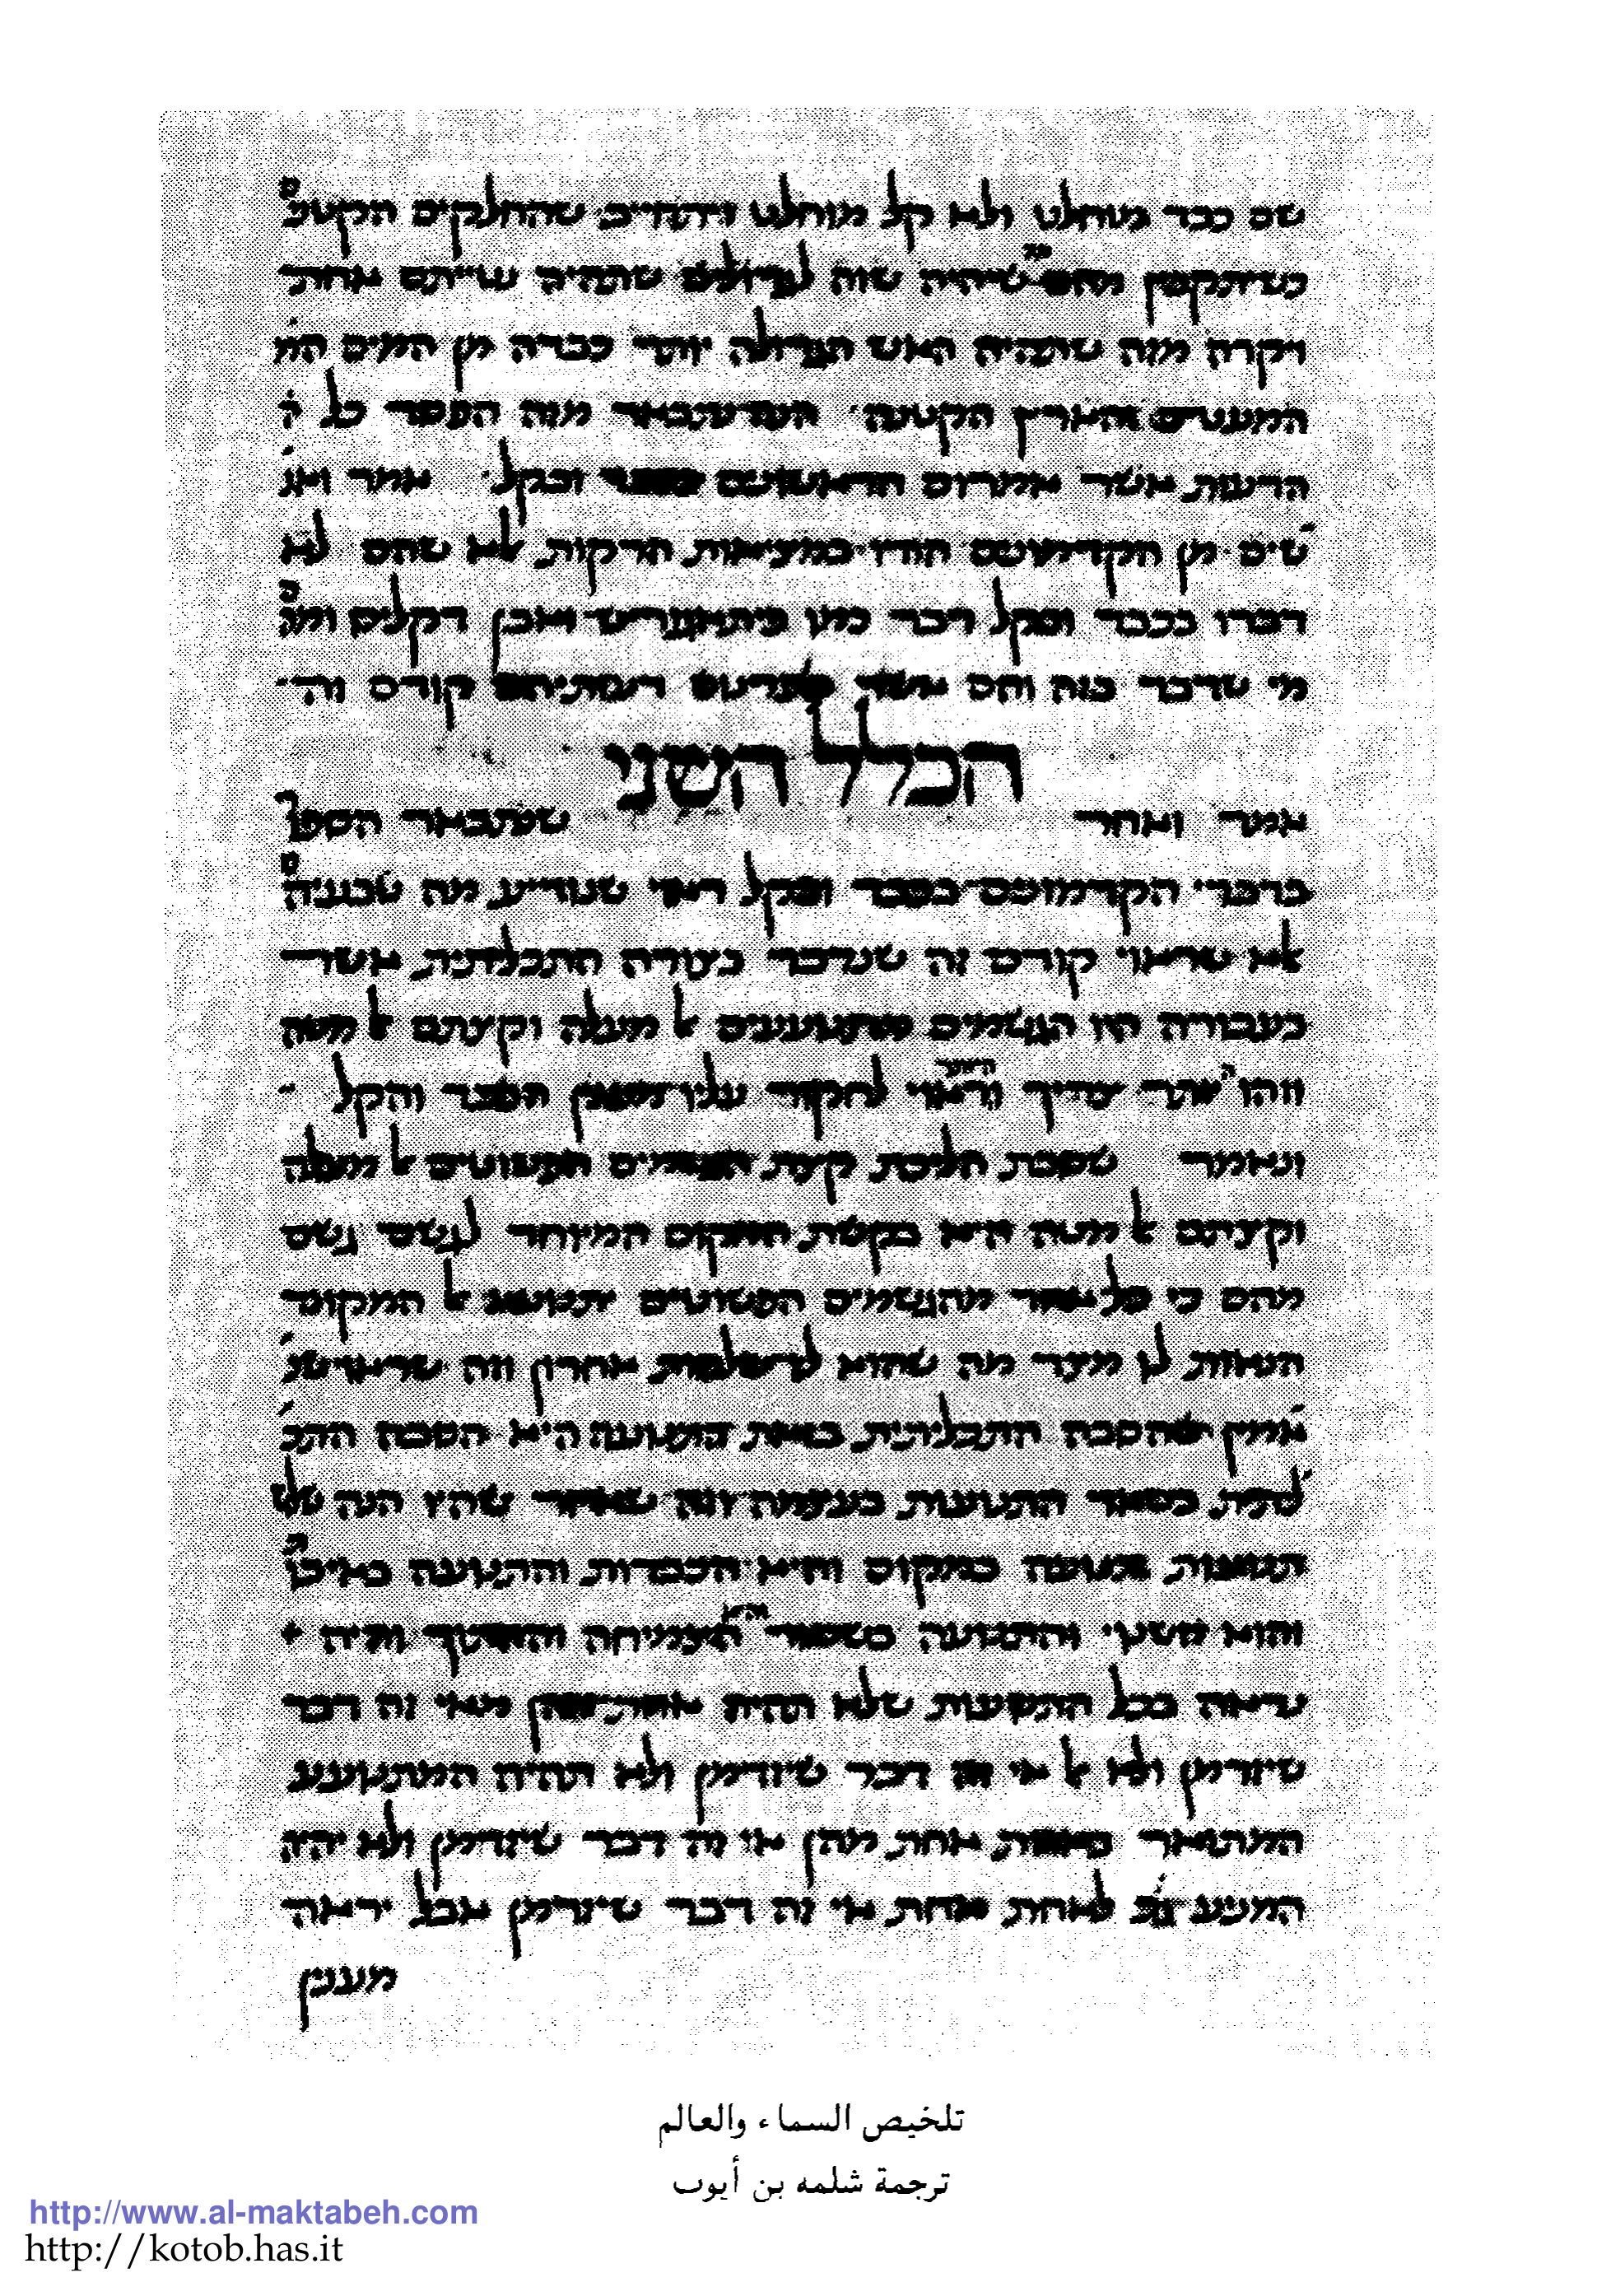 שם כבד מוחלט ולא קל מוחלט ויתחייב שהחלקים הקטנים
כשיתקבץ מהם שיהיה שוה לגדולים שתהיה נטייתם אחת
ויקרה מזה שתהיה האש הגדולה יותר כבדה מן המים המ
המעטים והארץ הקטנה הנה נתבאר מזה הפסד כל ה
הדעות אשר אמרום הראשונים בכבד ובקל אמר ואנ
שים מן הקדמונים הודו במציאות הרקות לא שהם לא
דברו בכבד ובקל דבר כמו אבן דקליס ומהם
מי שדבר בזה והם אשר דעותיהם קודם זה
הכלל השני
אמר ואחר שנתבאר הספק
בדברי הקדמונים בכבד ובקל ראוי שנודיע מה שבעיניה
לא שראוי קודם זה שנדבר בצורה התכליתית אשר
בעבורה היו הגשמים מתנועעים אל מעלה וקצתם אל מטה
וזהו אשר צריך וראוי לחקור עליו מענין הכבד והקל
ונאמר שסבת הליכת קצת הגשמים הפשוטים אל מעלה
וקצתם אל מטה היא בקשת המקום המיוחד לגשם גשם
מהם כי כל אחד מהגשמים הפשוטים יתנועע אל המקום
הנאות לו מצד מה שהוא לו שלמות אחרון וזה שראוי שנ
אמין שהסבה התכליתית בזאת התנועה היא הסבה התכ
ליתית בשאר התנועות בעצמה וזה שאחר שהיו הנה שלש
תנועות תנועה במקום והיא הכבדות והתנועה באיכות
והוא השנוי והתנועה בשעור היא הצמיחה וההתוך והיה
נראה בכל התנועות שלא תהיה אחת מהן מאי זה דבר
שיזדמן ולא אל אי זה דבר שיזדמן ולא תהיה המתנועע
המתואר באחת אחת מהן אי זה דבר שיזדמן ולא יהיה
המניע לאחת אחת אי זה דבר שיזדמן אבל יראה
מענין
تلخيص السماء والعالم
ترجمة شلمه بن أيوب
http://www.al-maktabeh.com
http://kotob.has.it